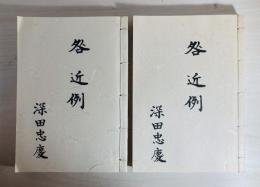 咎近例
深田忠慶
咎近例
深田忠慶